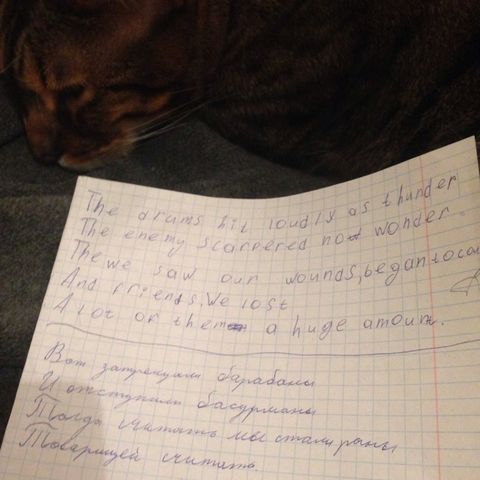 The drums hit loudls as thunder
The enemy scarpered not wonder.
The we saw our wounds, began to cou
And friends, We lost
A lot of them a huge amount.
Вот затрещали барабаны
И отступили басурманы
Тогда считать мы стали раны
Товарищей считать.